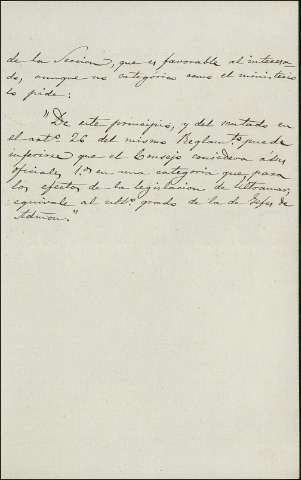 de la Seccion, que es favorable al interesa
do, aunque no categórica como el ministerio
lo pide:
"De este principio, y del sentado en
el artº. 26 del mismo Reglamto. puede
inferirse que el Consejo considera á sus
oficiales 1.os en una categoria que, para
los efectos de la legislacion de Ultramar,
equivale al ultº. grado de la de Jefes de
Admon."